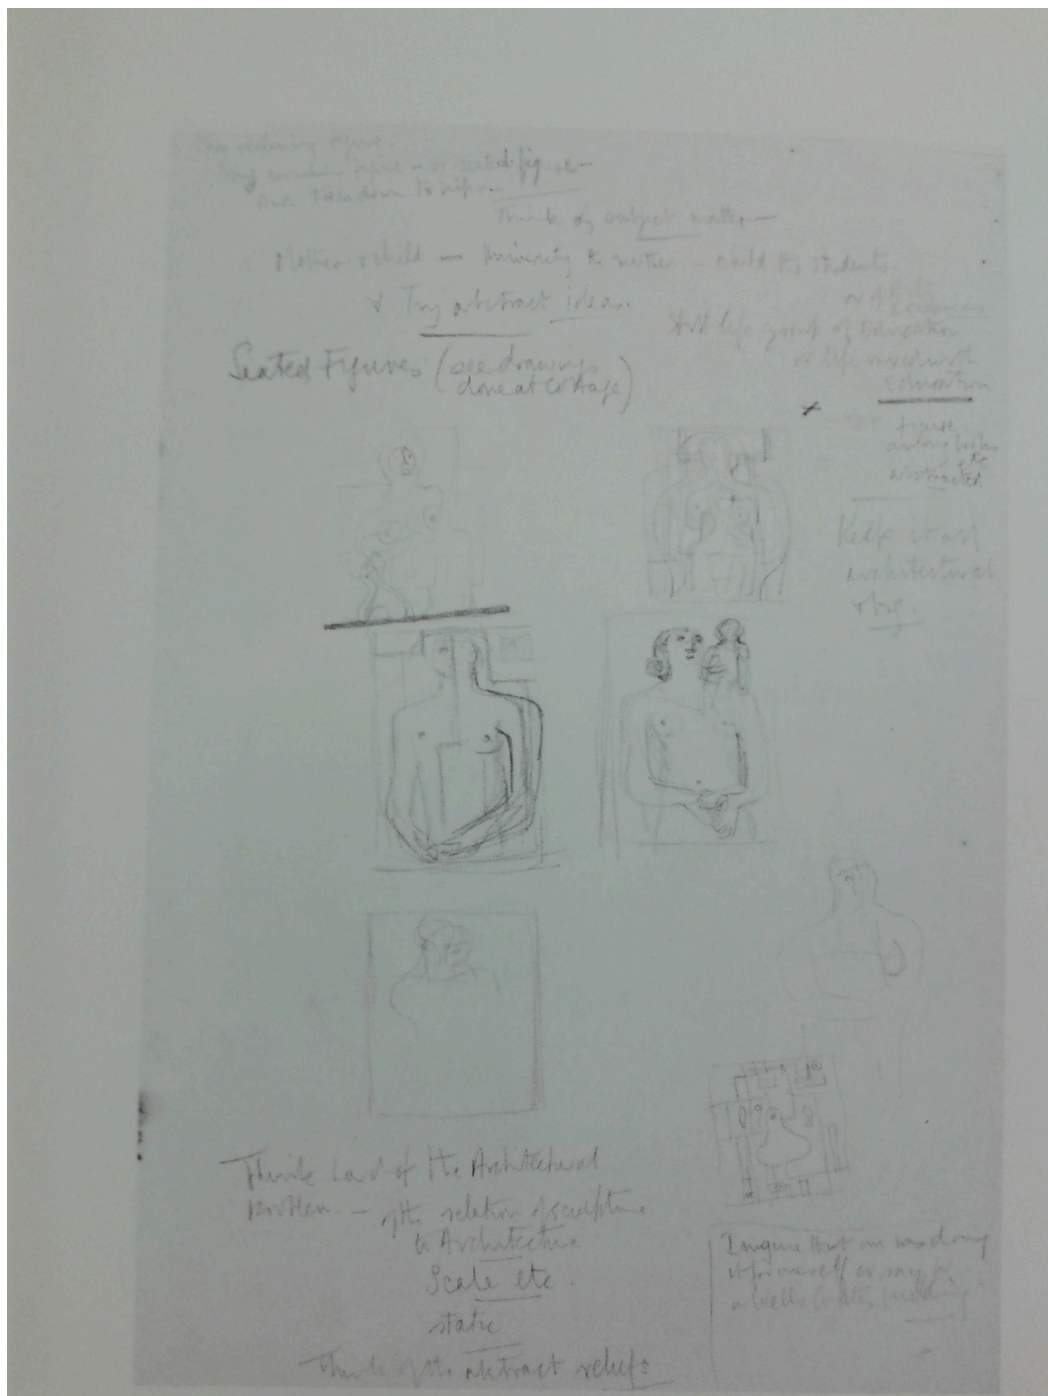 Try reclining figure.
Try figure - or seated fig
And torso down to hips.
Think of subject matter—
Mother & child — University the mother — child the students
& Try abstract ideas.
or of the
Still life group of Education
or life
education
Seated Figures (see drawings
done at cottage)
figure
among books
etc
abstracted
Keep it all
architectural
Think hard of the Architectural
problem — of the relation of sculpture
to Architecture
Scale etc.
static
Think of the abstract reliefs
Imagine that one was doing
it for oneself or say for
a Wells Coates building